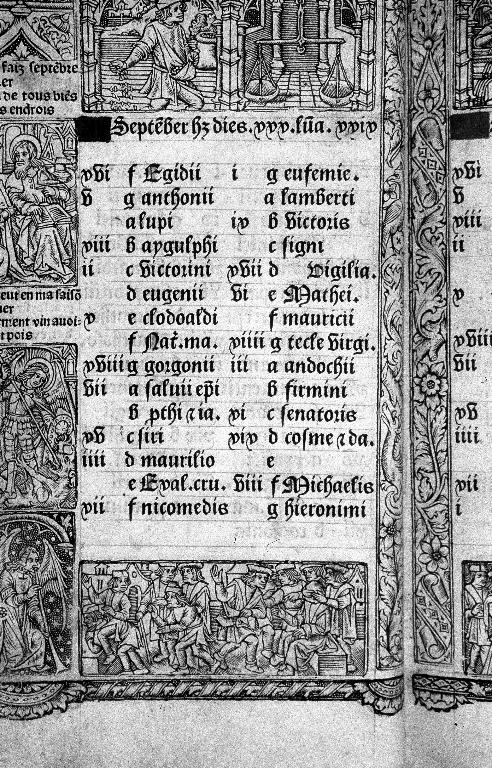 faiz septẽbre
er
de tous biẽs
s endrois
Septẽber hʒ dies.xxx.lũa.xxix
xvi f Egidii i g eufemie.
v g anthonii a lamberti
a lupi ix b victoris
xiii b aygulphi c signi
ii c victorini xvii d Vigilia.
d eugenii vi e Mathei.
x e clodoaldi f mauricii
f Nat̃.ma. xiiii g tecle virgi.
xviii g gorgonii iii a andochii
vii a saluii ep̃i b firmini
b ꝓthi ⁊ ia. xi c senatoris
xv c siri xix d cosme ⁊ da.
iiii d maurilio e
e Exal.cru. viii f Michaelis
xii f nicomedis g hieronimi
eut en ma saisõ
uer
ment vin auoi-
t pois
xvi
v
xiii
ii
x
xviii
vii
xv
iiii
xii
i